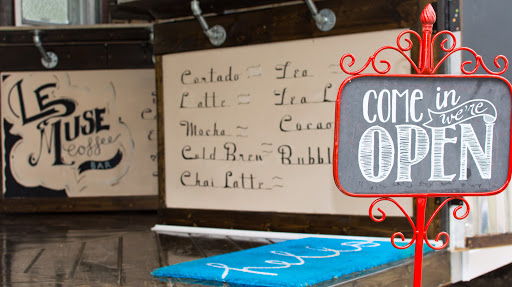 LE
MUSE
Coffee
BAR
Cortado
Latte
Mocha
Cold Brew
Chai Latte
Tea
Tea L
Cocao
Bubbl
COME in
we're
OPEN
hello